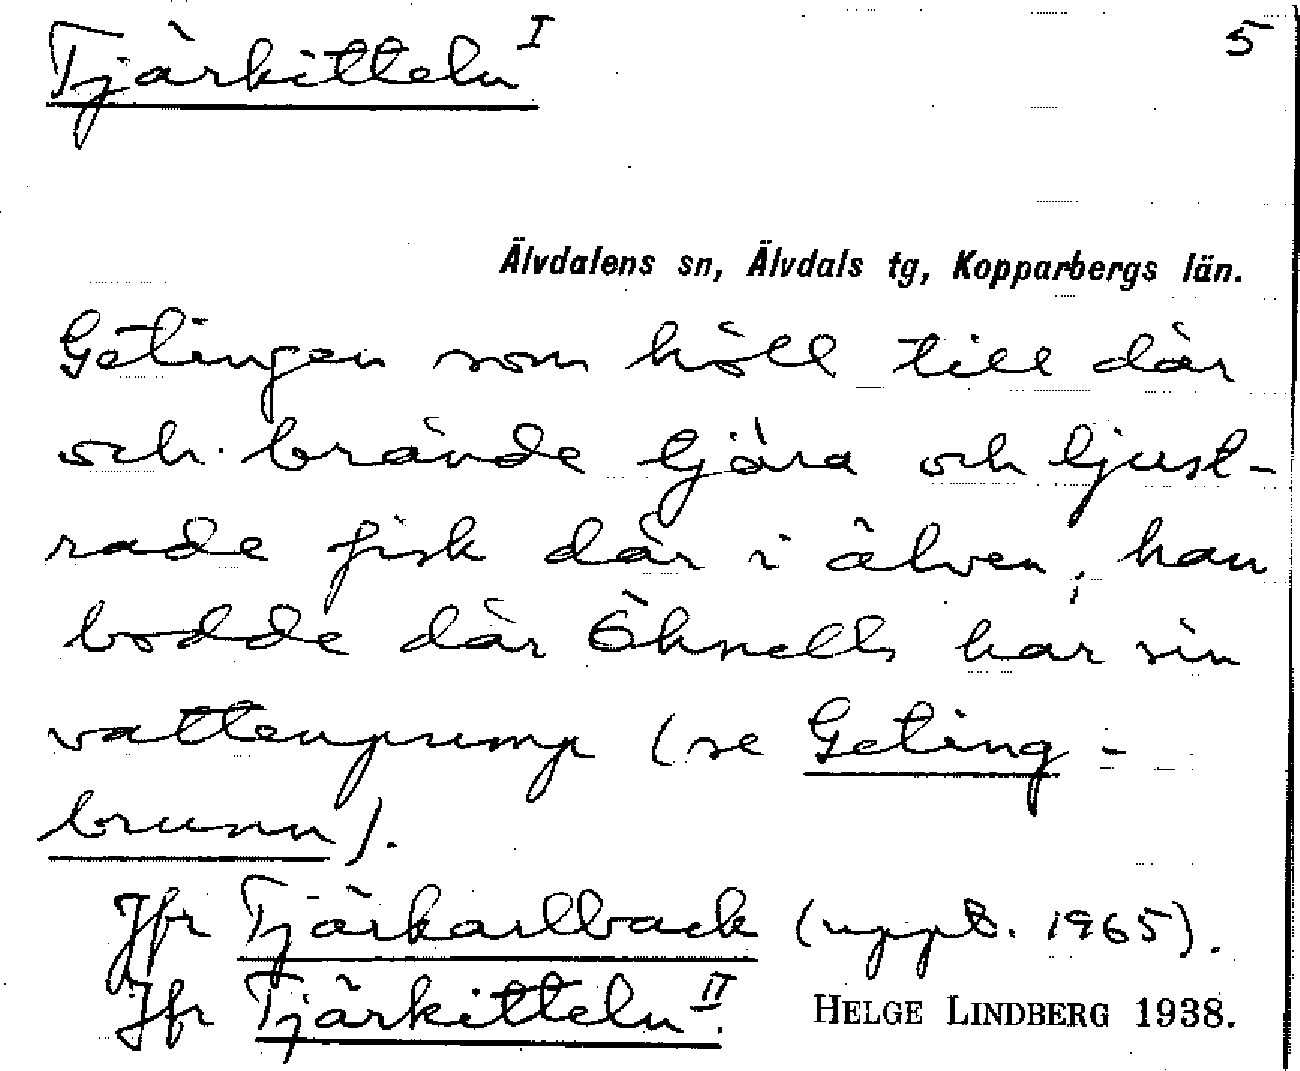 Tjärkitteln I 5
Älvdalens sn, Älvdals tg, Kopparbergs län.
Getingen som höll till där
och brände tjära och ljust-
rade fisk där i älven; han
bodde där Öhnells har sin
vattenpump (se Geting-
brunn).
Jfr Tjärkarlback (uppt. 1965).
Jfr Tjärkitteln II.
HELGE LINDBERG 1938.